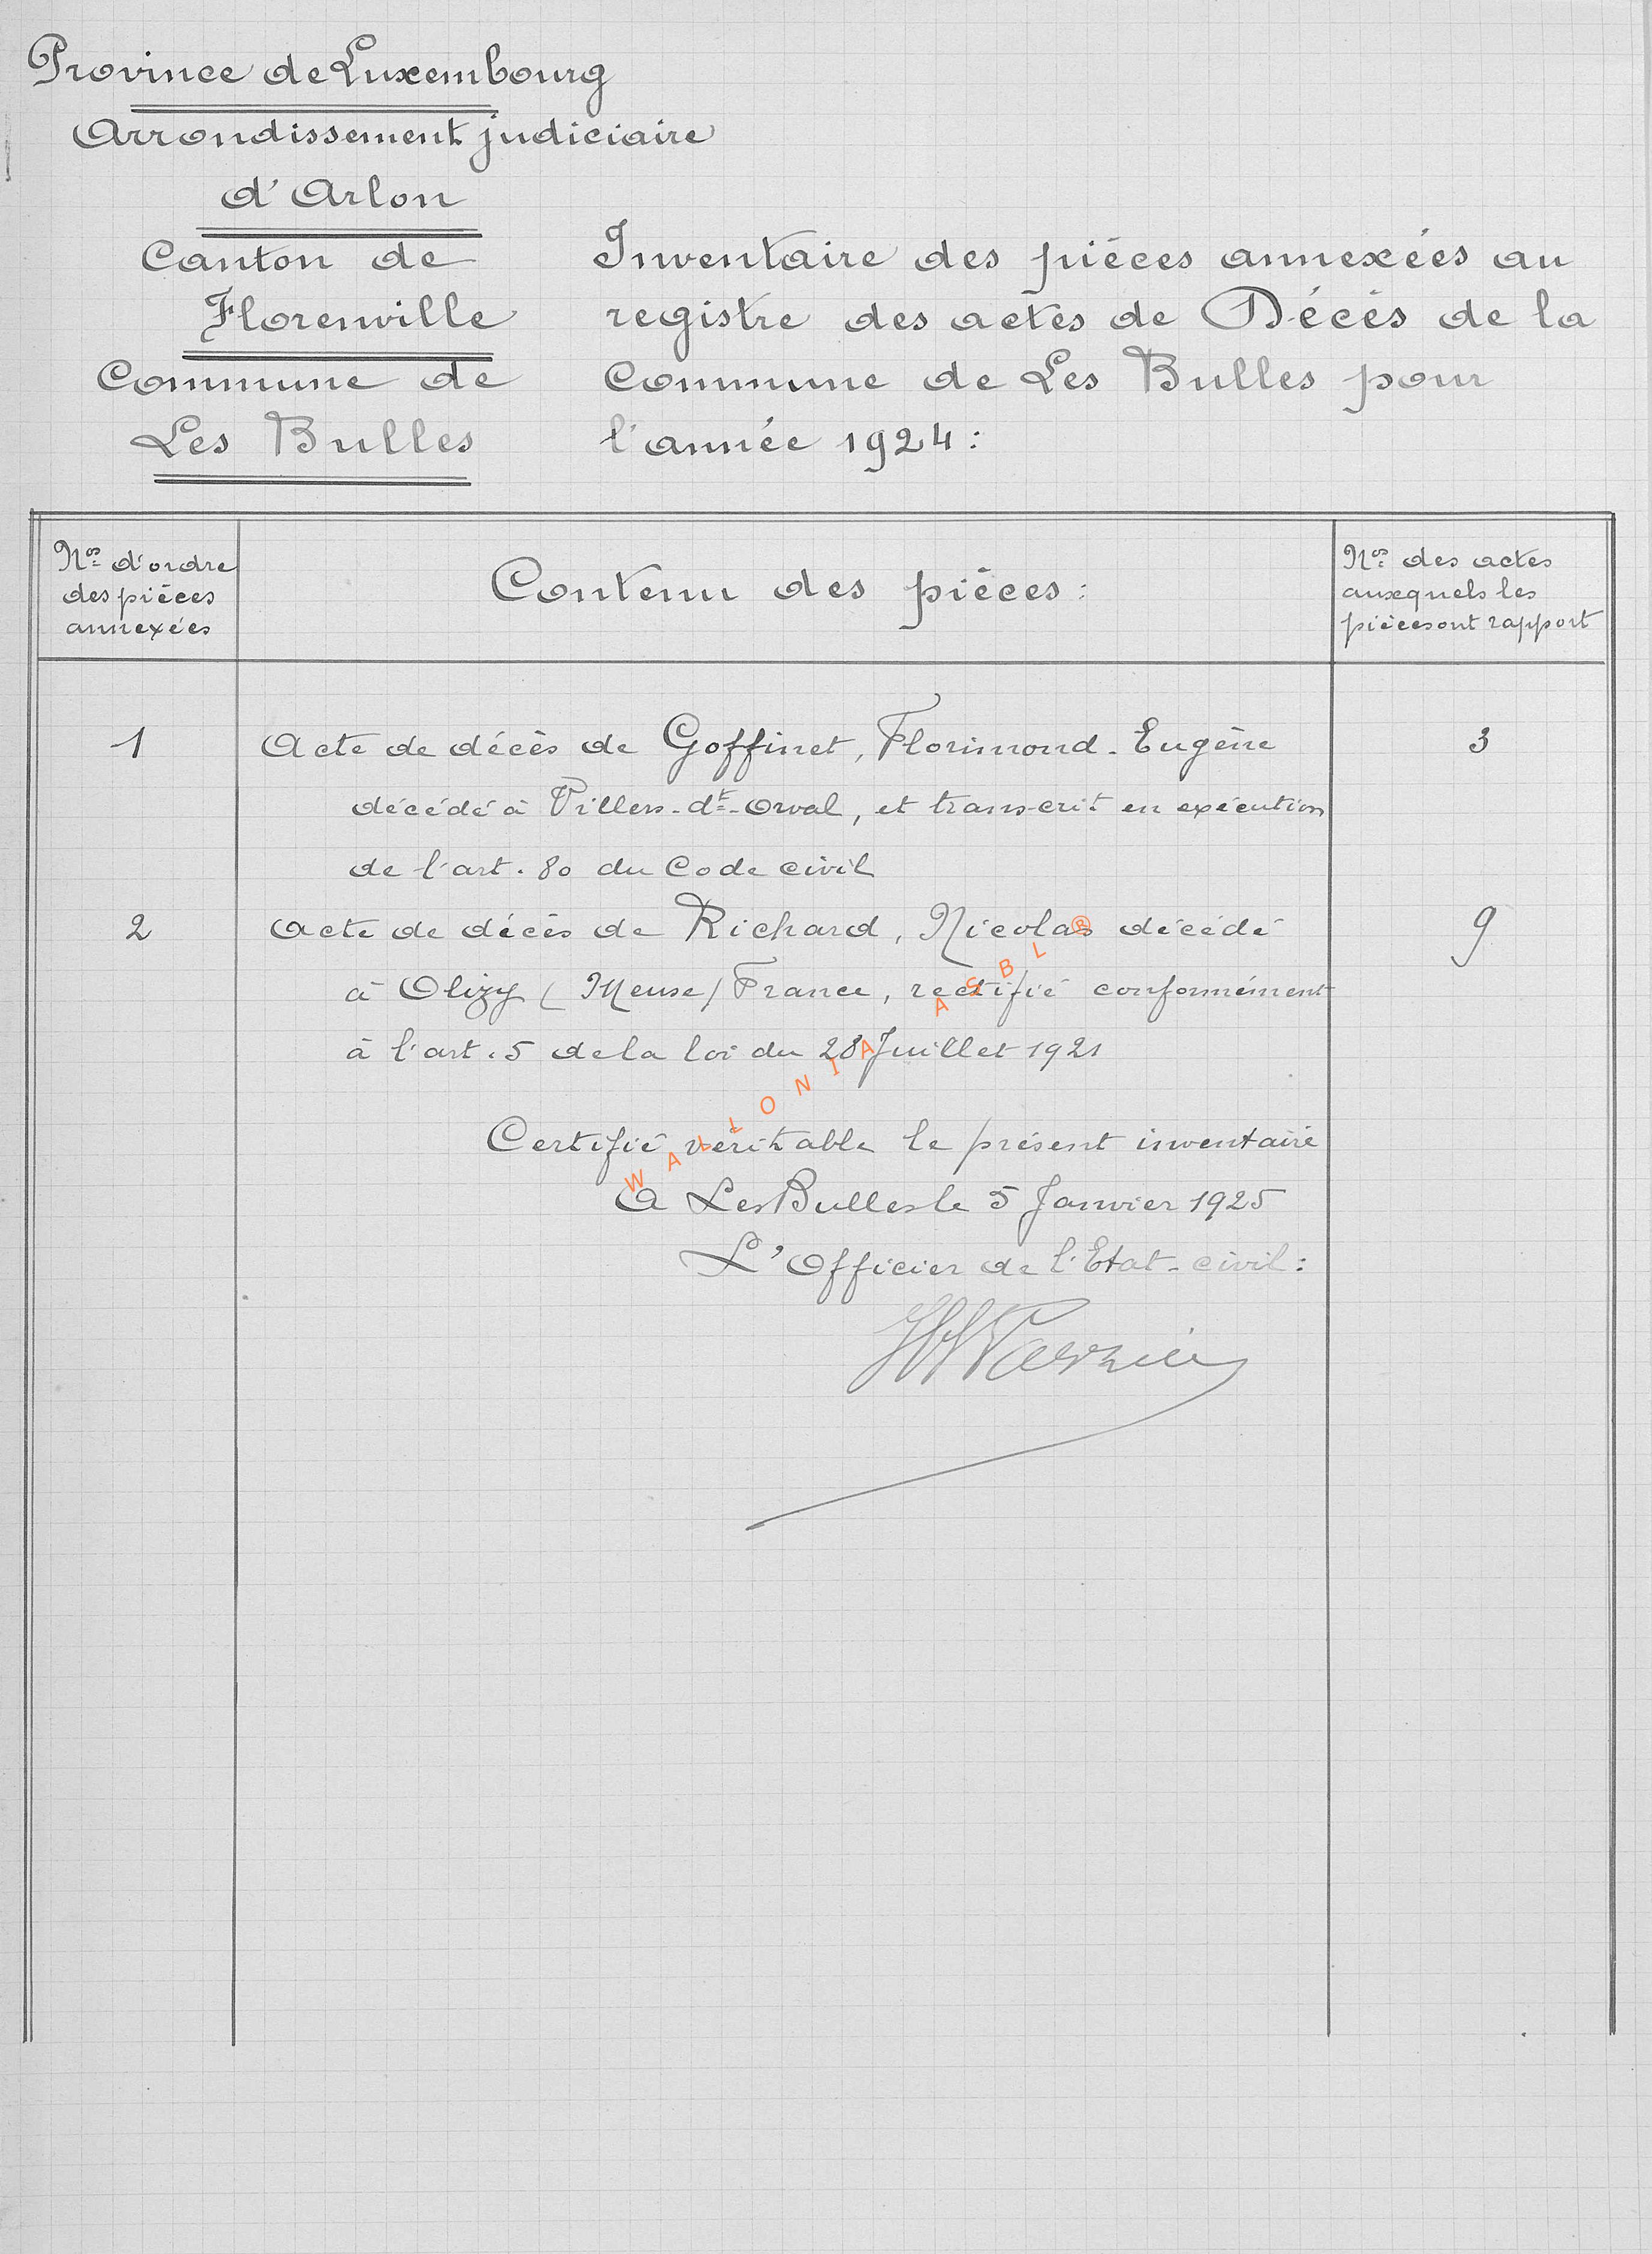 Province de Luxembourg
Arrondissement judiciaire
d'Arlon
Canton de
Florenville
Commune de
Les Bulles
Inventaire des pièces annexées au
registre des actes de Décès de la
Commune de Les Bulles pour
l'année 1924 :
Nos d'ordre
des pièces
annexées
Contenu des pièces :
Nos des actes
auxquels les
pièces ont rapport
1
Acte de décès de Goffinet, Florimond-Eugène
3
décédé à Villers-dt-Orval, et transcrit en exécution
de l'art. 80 du Code civil
2
Acte de décès de Richard, Nicolas décédé
9
à Olizy (Meuse) France, rectifié conformément
à l'art. 5 de la loi du 28 Juillet 1921
Certifié véritable le présent inventaire
A Les Bulles le 5 Janvier 1925
L'Officier de l'Etat-civil :
WALLONIA ASBL ®